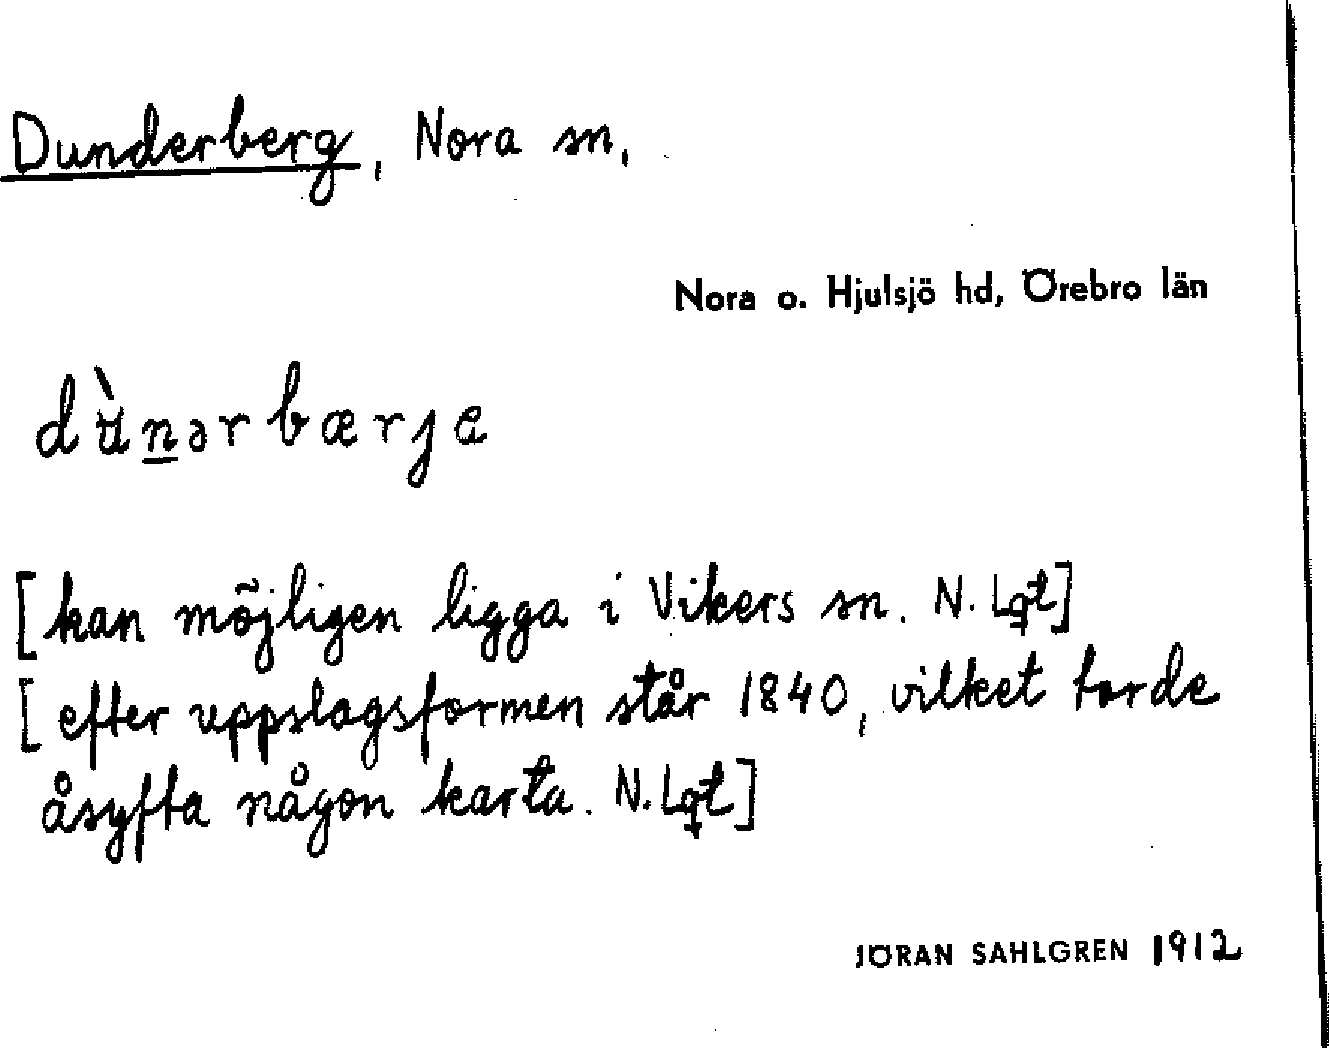 Dunderberg, Nora sn,
Nora o. Hjulsjö hd, Örebro län
dʉ̀nərbærjɐ
[kan möjligen ligga i Vikers sn. N. Lqt]
[efter uppslagsformen står 1840, vilket torde
åsyfta någon karta. N. Lqt]
JÖRAN SAHLGREN 1912